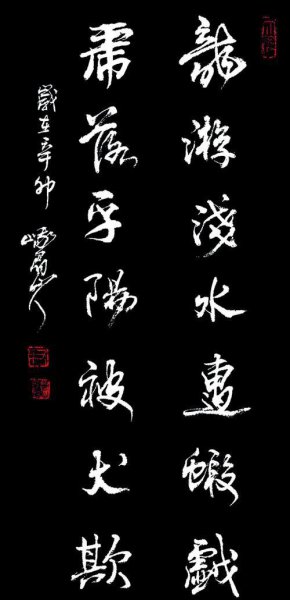 龍游淺水遭蝦戲
虎落平陽被犬欺
歲在辛卯